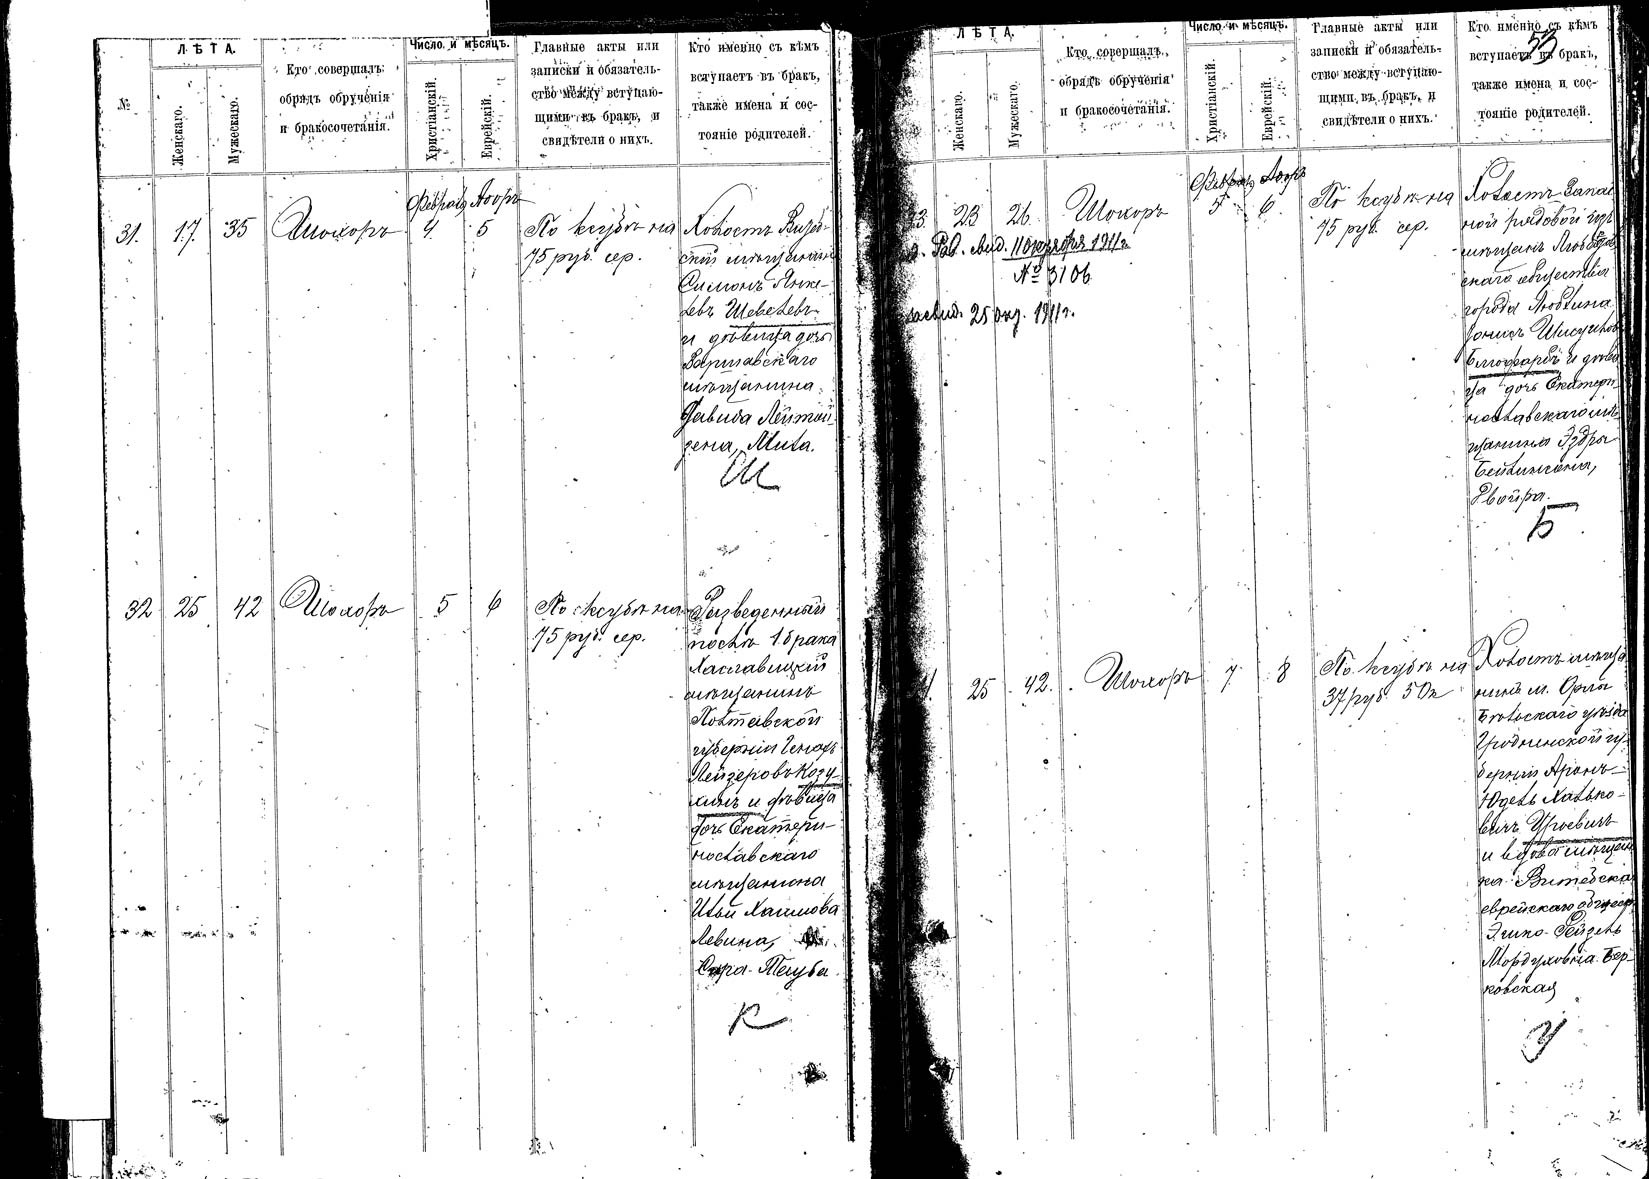 №
ЛѢТА.
Женскаго.
Мужескаго.
Кто совершалъ
обрядъ обрученія
и бракосочетанія.
Число и мѣсяцъ.
Христіанскій.
Еврейскій.
Главные акты или
записки и обязатель-
ство между вступаю-
щими въ бракъ, и
свидѣтели о нихъ.
Кто именно съ кѣмъ
вступаетъ въ бракъ,
также имена и сос-
тояніе родителей.
31.
17.
35
Шохоръ
Февраль
4
Адоръ
5
По ксубѣ на
75 руб. сер.
Холостъ
скій мѣщанинъ
Симонъ Янке-
левъ Шевелевъ
и дѣвица дочь
Варшавскаго
мѣщанина
Давида
Ш
32
25
42
Шохоръ
5
6
По ксубѣ на
75 руб. сер.
Разведенный
послѣ 1 брака
Хаславицкій
мѣщанинъ
Полтавской
губерніи
Лейзеровъ Козу-
хинъ и дѣвица
дочь Екатери-
нославскаго
мѣщанина
Ильи Хаимова
Левина,
Сора-Тауба.
К
53
ЛѢТА.
Женскаго.
Мужескаго.
Кто совершалъ
обрядъ обрученія
и бракосочетанія.
Число и мѣсяцъ.
Христіанскій.
Еврейскій.
Главные акты или
записки и обязатель-
ство между вступаю-
щими въ бракъ, и
свидѣтели о нихъ.
Кто именно съ кѣмъ
вступаетъ въ бракъ,
также имена и сос-
тояніе родителей.
23
26
Шохоръ
Февраль
5
Адоръ
6
По ксубѣ на
75 руб. сер.
свид. 11 октября 1911 г.
№ 3106
25 окт. 1911 г.
Холостъ Запас-
ной рядовой изъ
мѣщанъ
скаго общества
города Люблина
и дѣви-
ца дочь Екатери-
нославскаго мѣ-
щанина Эздры
Двойра.
Б
25
42.
Шохоръ
7
8
По ксубѣ на
37 руб. 50 к
Холостъ мѣща-
нинъ м. Орла
Бѣльскаго уѣзда
Гродненской гу-
берніи Аронъ-
Юдель Хацько-
вичъ
и вдова мѣщан-
ка Витебска
еврейскаго общест
Мордуховна Бер-
ковская
У